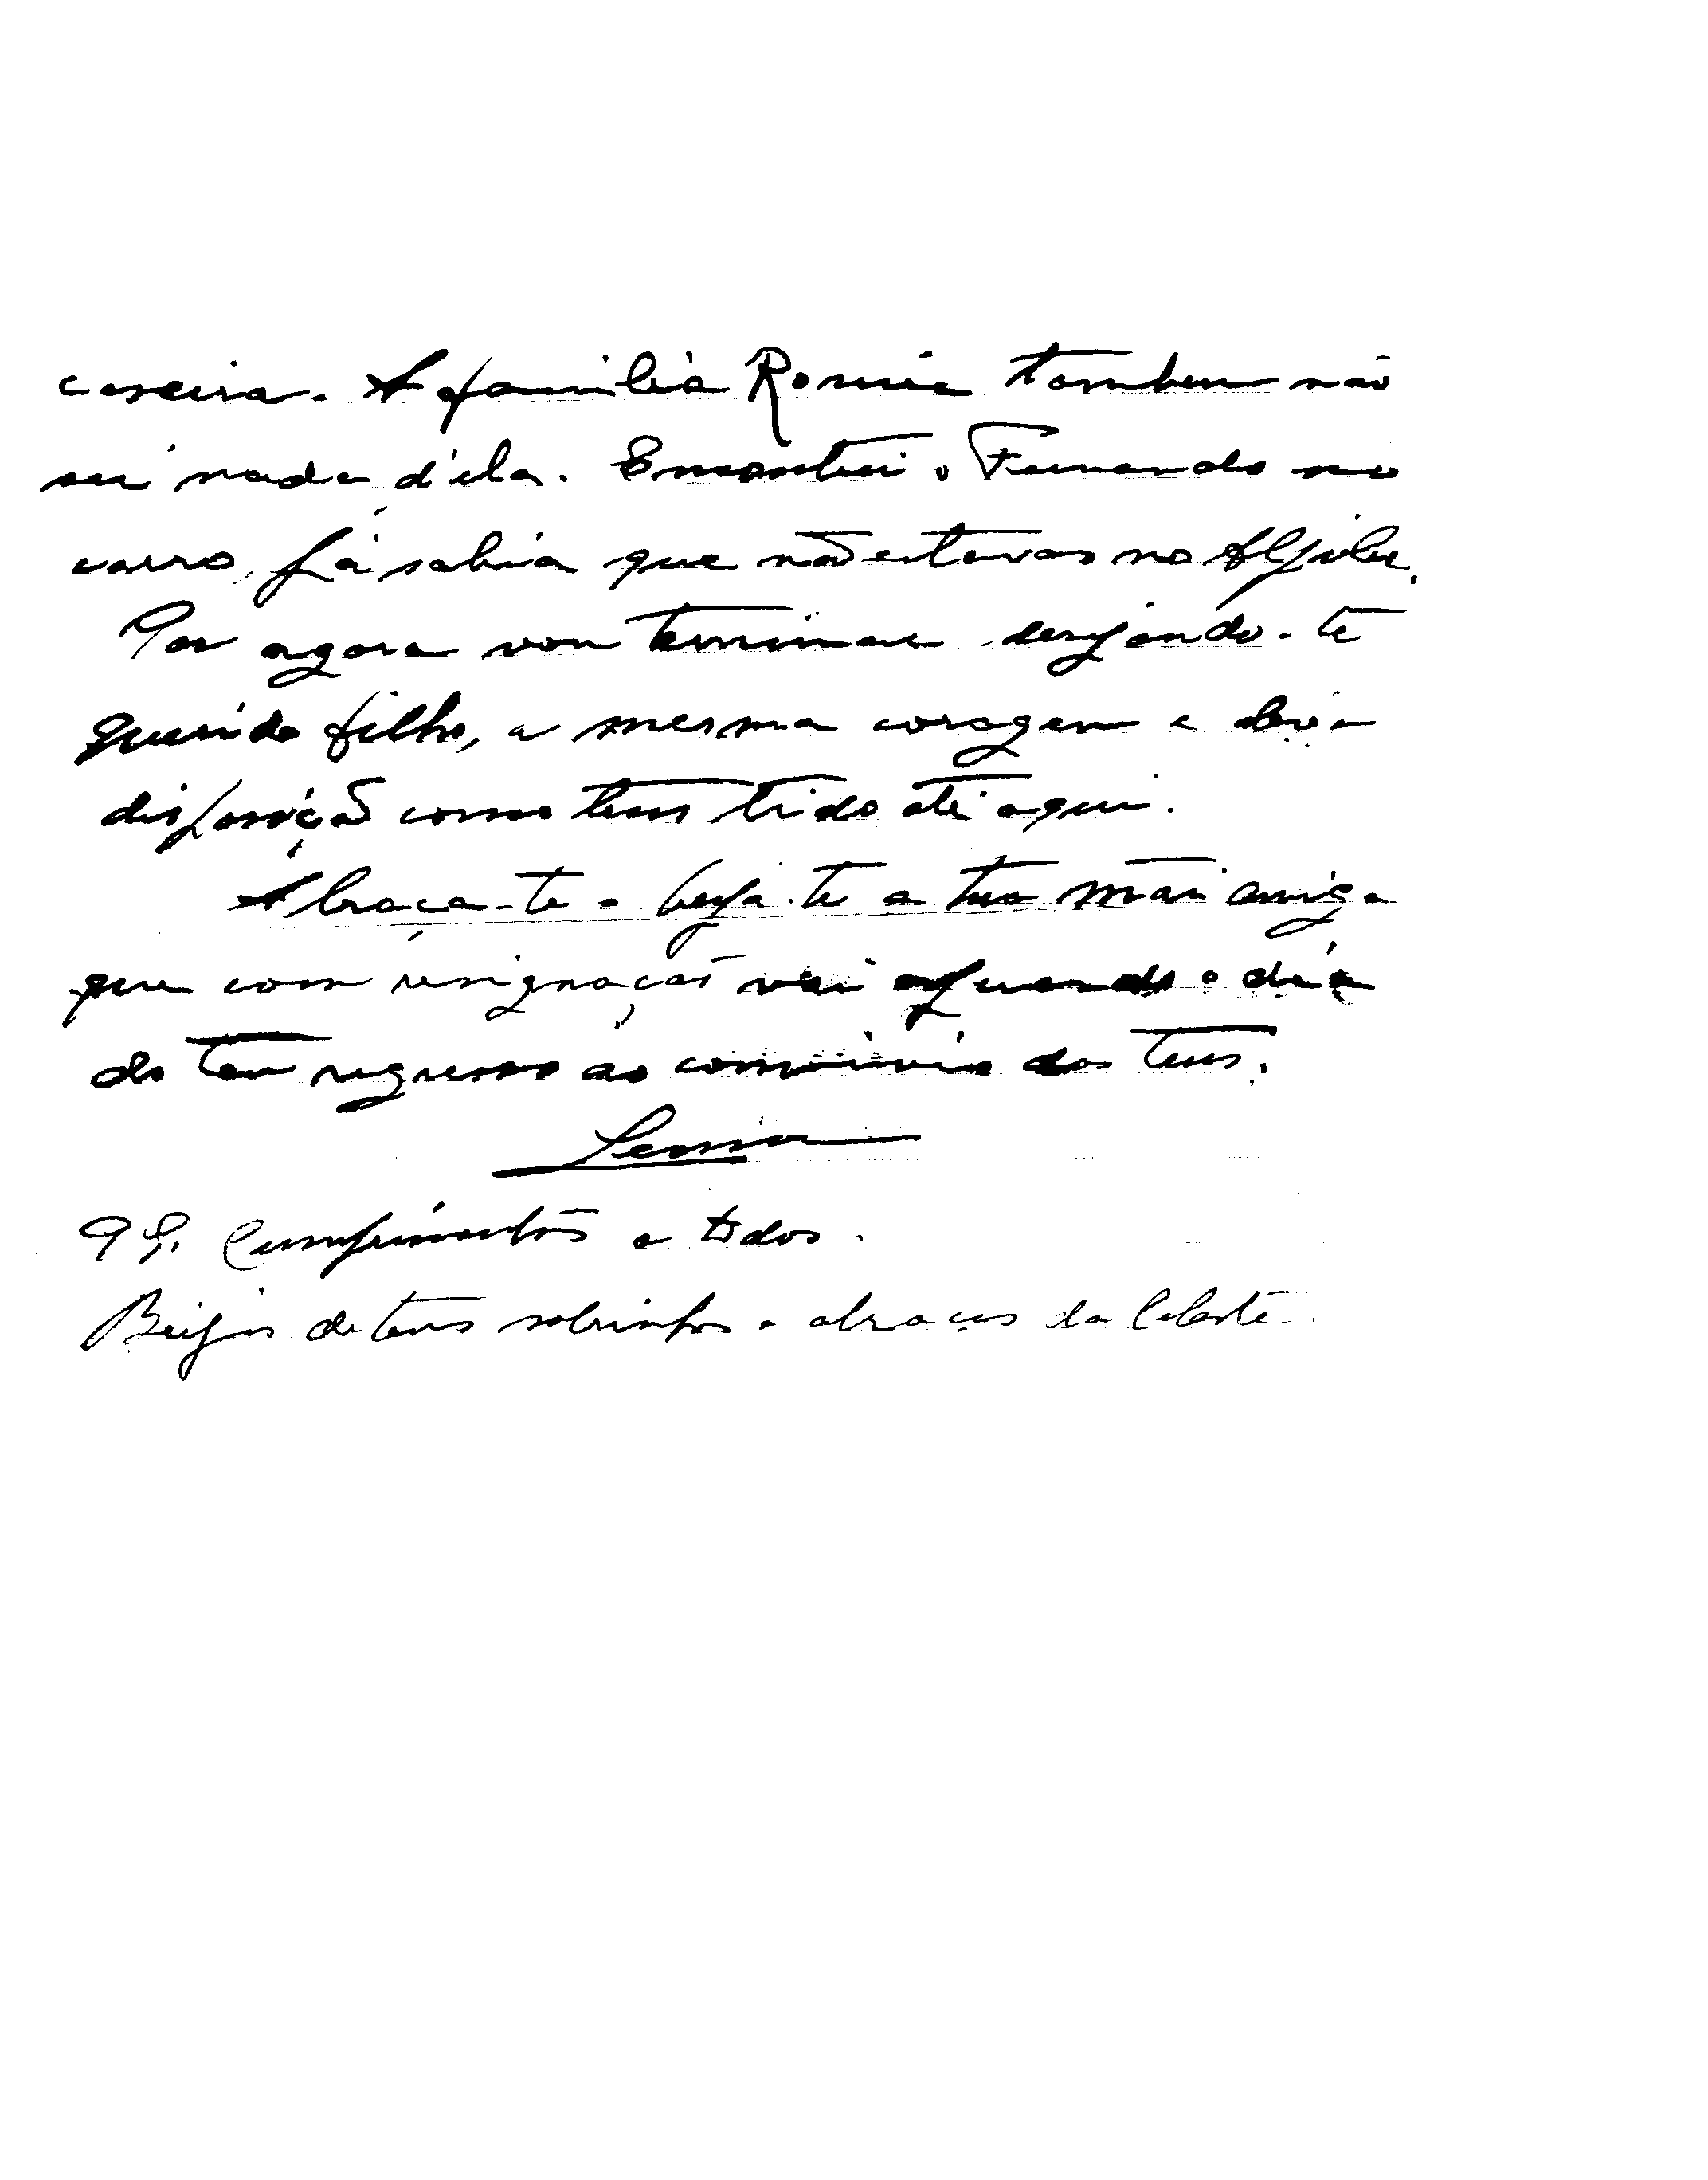 caseira. A familia tambem não
sei nada d'ela. Encontrei o Fernando no
carro, já sabia que não estavas no Aljube.
Por agora vou terminar desejando-te
querido filho, a mesma coragem e boa
disposição como tens tido até aqui.
Abraça-te e beija-te a tua mãi amiga
que com resignação vai esperando o dia
do teu regresso ao convivio dos teus.
P S. Cumprimentos a todos.
Beijos de teus sobrinhos e abraços da Celeste.